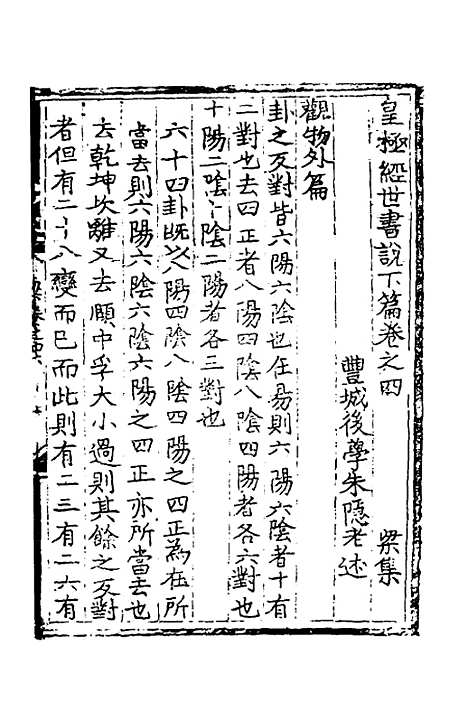 皇極經世書說下篇卷之四
梁集
豐城後學朱隱老述
觀物外篇
卦之反對皆六陽六陰也在易則六陽六陰者十有
二對也去四正者八陽四陰八陰四陽者各六對也
十陽二陰十陰二陽者各三對也
六十四卦旣以八陽四陰八陰四陽之四正為在所
當去則六陽六陰六陰六陽之四正亦所當去也
去乾坤坎離又去頤中孚大小過則其餘之反對
者但有二十八變而已而此則有二三有二六有